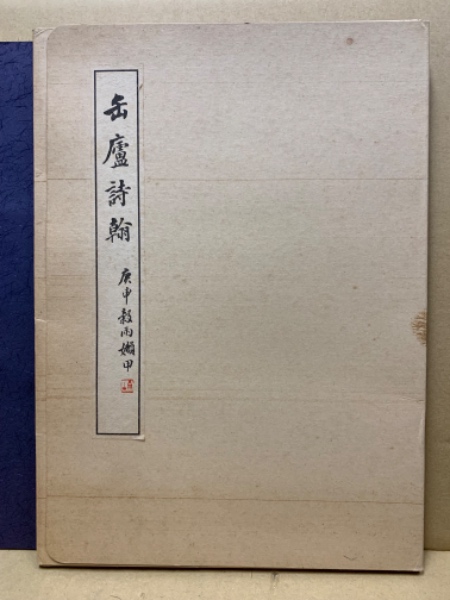 缶廬詩翰
庚申穀雨嬾甲